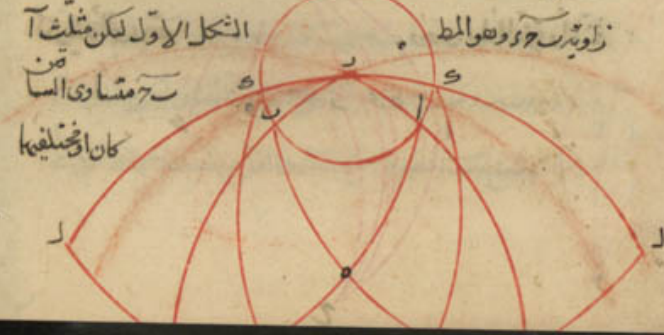 زاوية ب ح ء وهو المط
الشكل الاول لكن مثلث آ
ب ح متساوى السا
قين
كان او مختلفيها
ر
ء
ء
ب
ا
ل
ل
ه